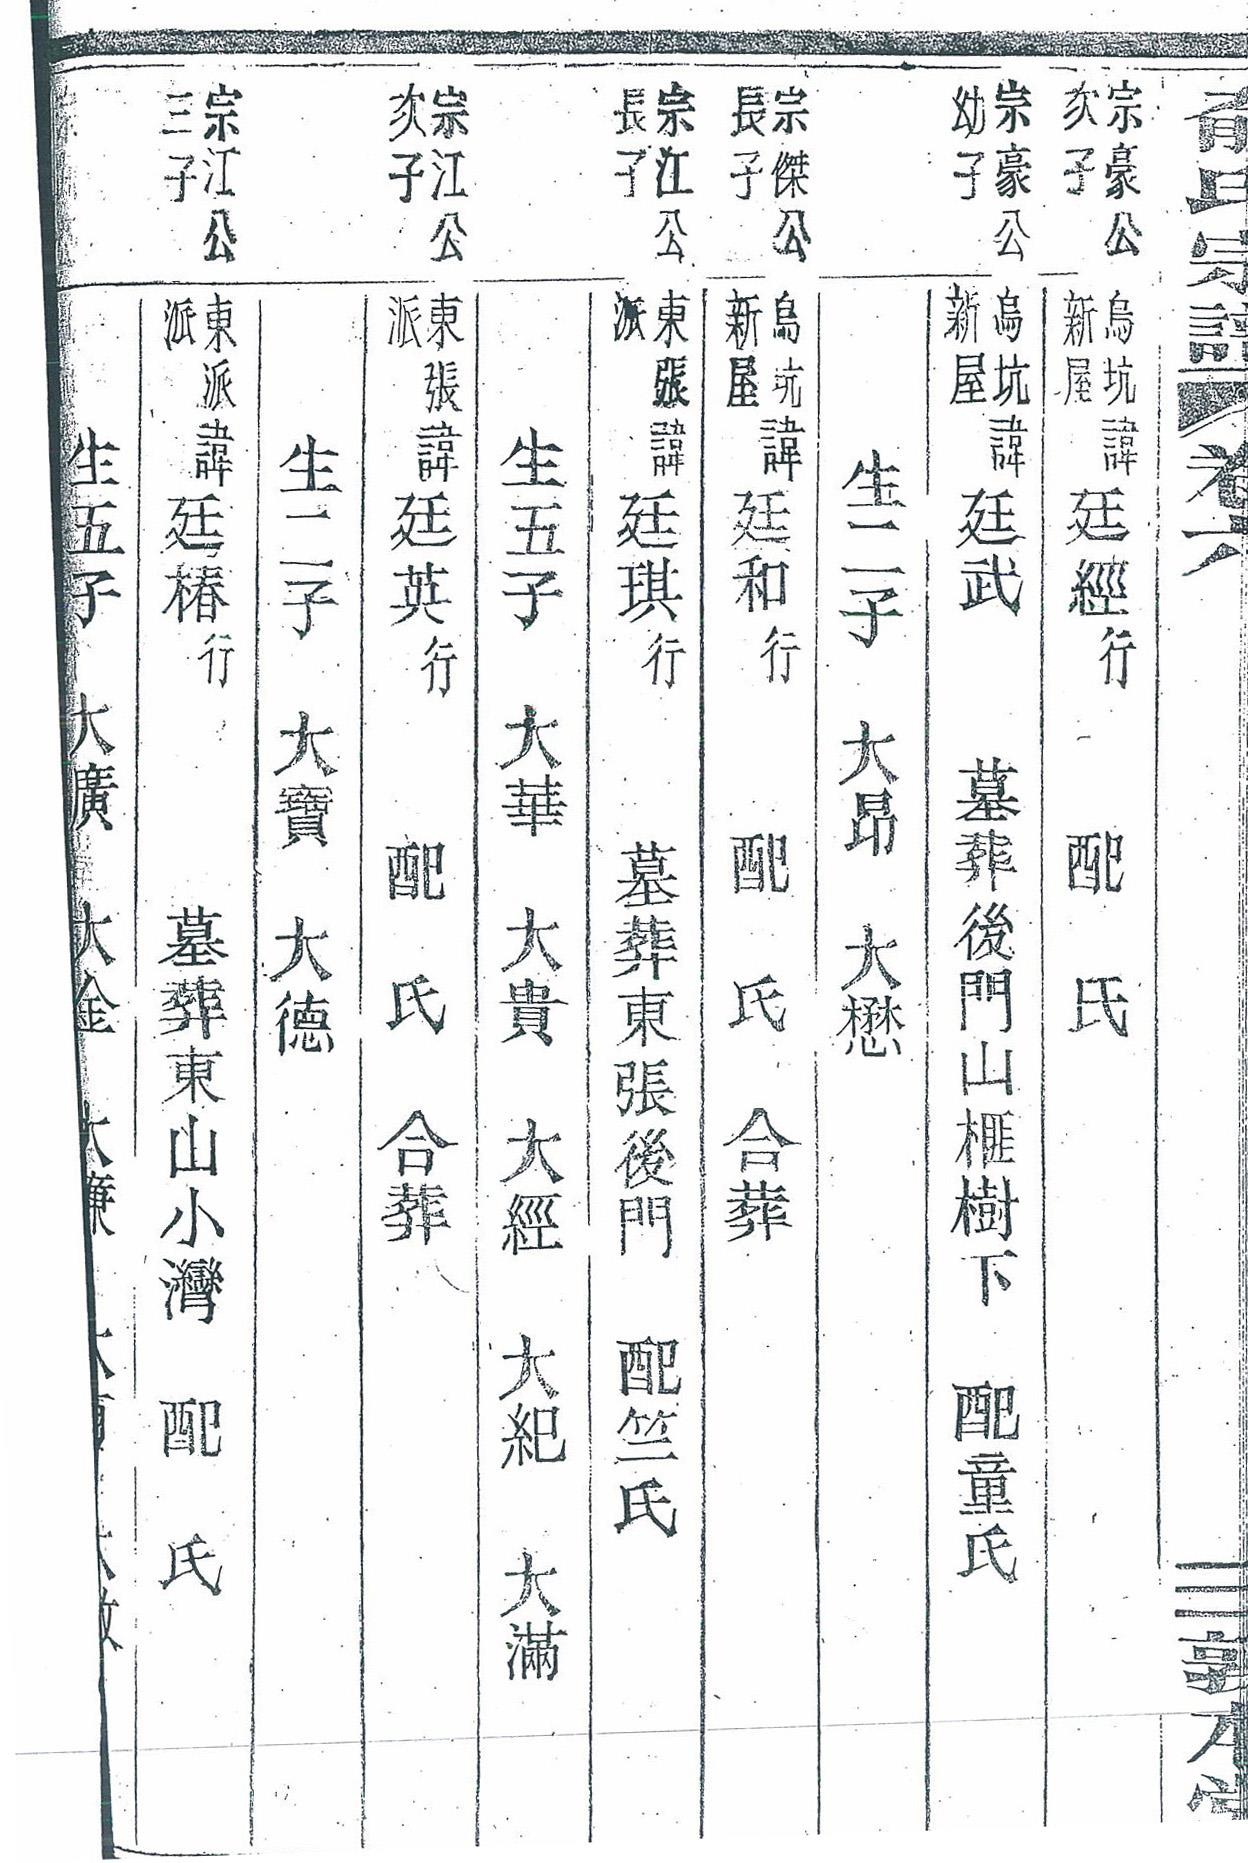 氏宗譜 卷六 三 敦本堂
宗豪公次子 烏坑新屋 諱廷經行 配 氏
宗豪公幼子 烏坑新屋 諱廷武 墓葬後門山榧樹下 配童氏
生二子 大昂 大懋
宗傑公長子 烏坑新屋 諱廷和行 配 氏 合葬
宗江公長子 東張派 諱廷琪行 墓葬東張後門 配竺氏
生五子 大華 大貴 大經 大紀 大滿
宗江公次子 東張派 諱廷英行 配 氏 合葬
生二子 大寶 大德
宗江公三子 東派派 諱廷椿行 墓葬東山小灣 配 氏
生五子 大廣 大金 大廉 大 大